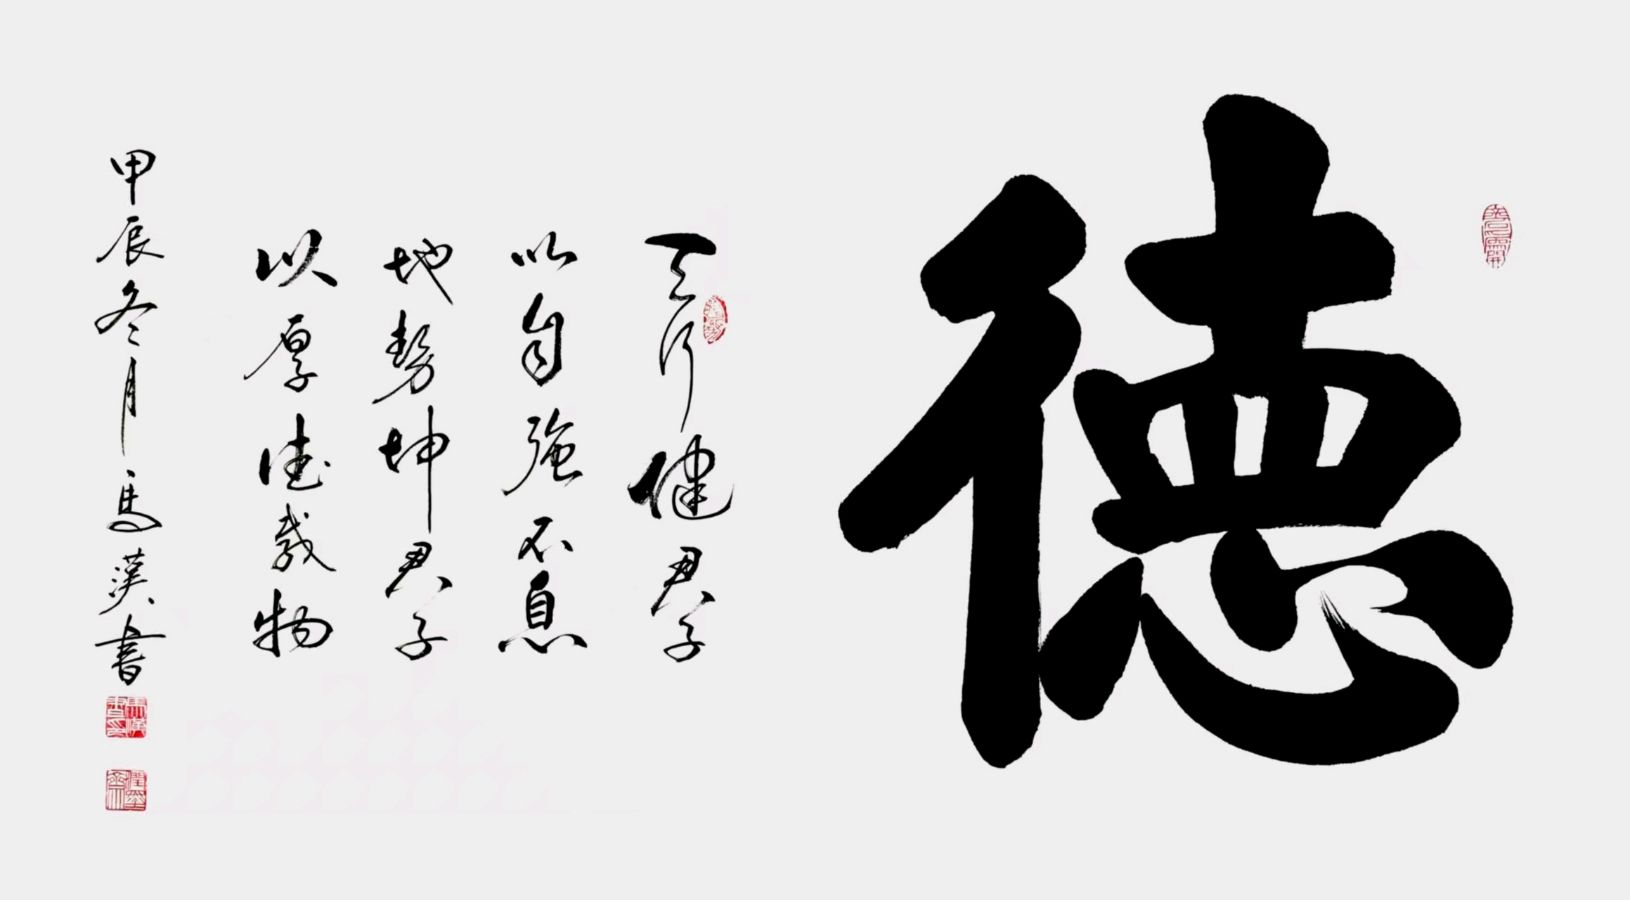 德
天行健君子
以自強不息
地勢坤君子
以厚德载物
甲辰冬月馬漢書